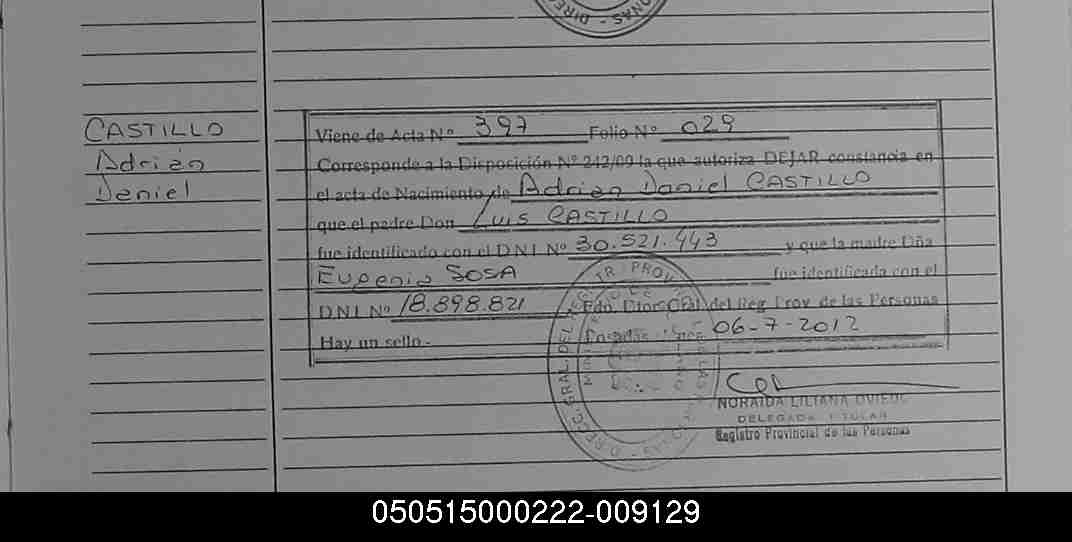 ONAS - DIREC
CASTILLO
Adrián
Daniel
Viene de Acta Nº 397 Folio Nº 029
Corresponde a la Disposición Nº 242/09 la que autoriza DEJAR constancia en
el acta de Nacimiento de Adrian Daniel CASTILLO
que el padre Don Luis CASTILLO
fue identificado con el DNI Nº 30.521.443 y que la madre Dña
Eugenia SOSA fue identificada con el
DNI Nº 18.898.821 Fdo. Dtor Gral del Reg Prov de las Personas
Posadas, Mnes 06-7-2012
Hay un sello.-
NORAIDA LILIANA OVIEDO
DELEGADA TITULAR
Registro Provincial de las Personas
050515000222-009129